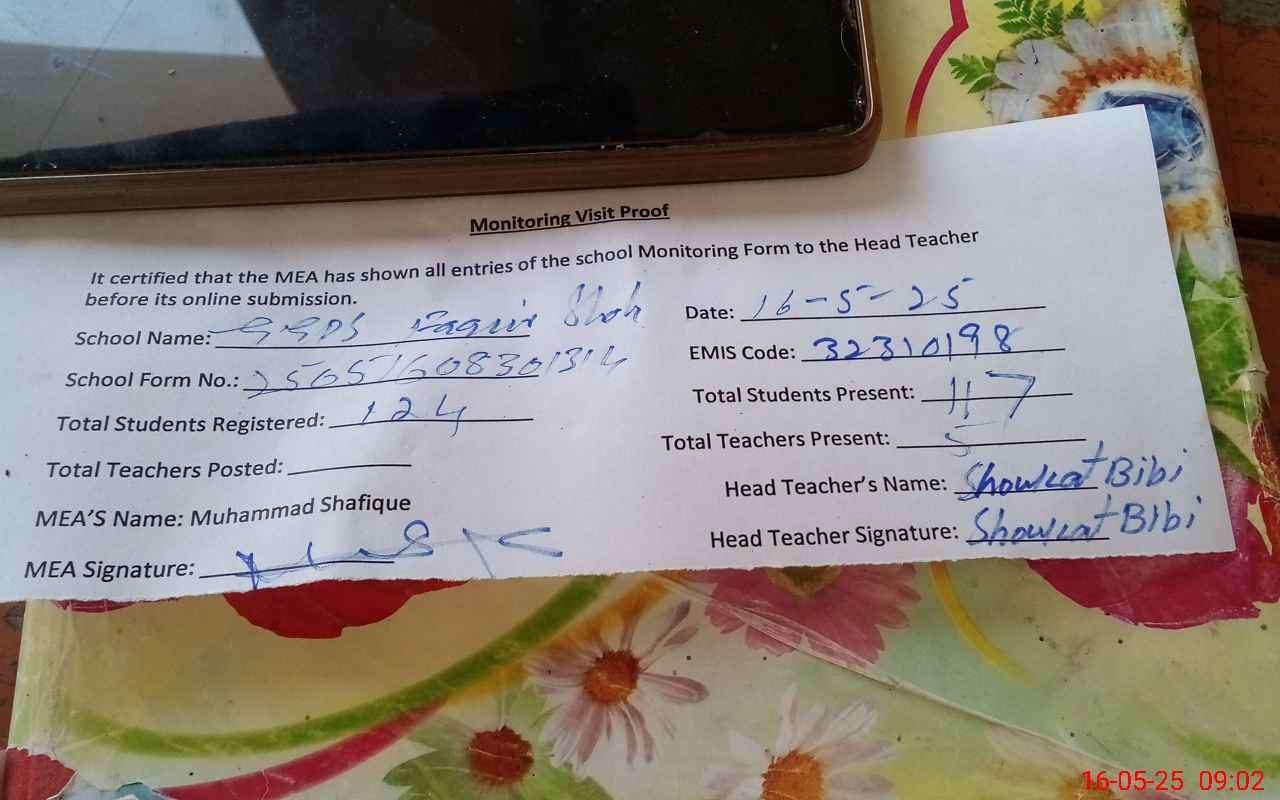 Monitoring Visit Proof
It certified that the MEA has shown all entries of the school Monitoring Form to the Head Teacher
before its online submission.
School Name: GGPS Faqir Shah
Date: 16-5-25
School Form No.:
EMIS Code: 32310198
Total Students Registered: 124
Total Students Present: 117
Total Teachers Posted:
Total Teachers Present: 5
MEA'S Name: Muhammad Shafique
Head Teacher's Name: Showkat Bibi
MEA Signature:
Head Teacher Signature: Showkat Bibi
16-05-25 09:02